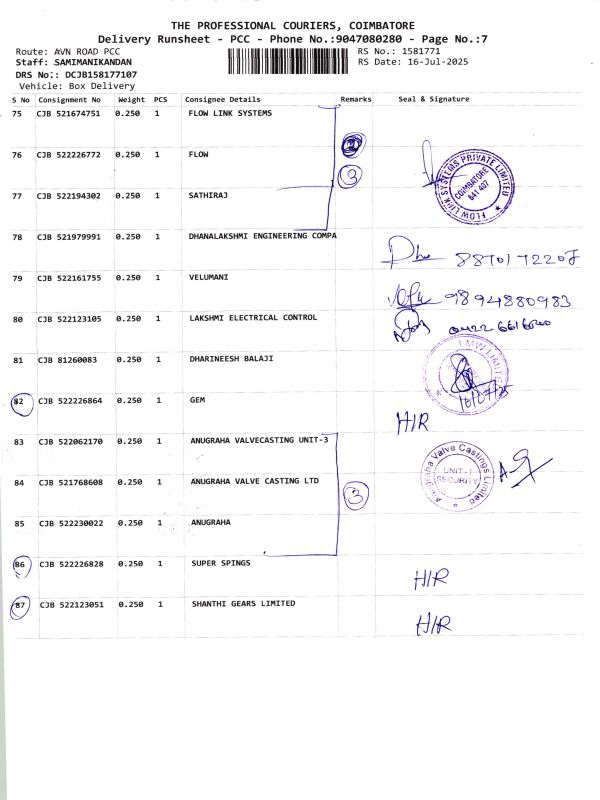 THE PROFESSIONAL COURIERS, COIMBATORE
Delivery Runsheet - PCC - Phone No.:9047080280 - Page No.:7
Route: AVN ROAD PCC
RS No.: 1581771
Staff: SAMIMANIKANDAN
RS Date: 16-Jul-2025
DRS No.: DCJB158177107
Vehicle: Box Delivery
S No Consignment No Weight PCS Consignee Details Remarks Seal & Signature
75 CJB 521674751 0.250 1 FLOW LINK SYSTEMS
76 CJB 522226772 0.250 1 FLOW
3
FLOW LINK SYSTEMS PRIVATE LIMITED
COIMBATORE
641 407
77 CJB 522194302 0.250 1 SATHIRAJ
78 CJB 521979991 0.250 1 DHANALAKSHMI ENGINEERING COMPA
79 CJB 522161755 0.250 1 VELUMANI
9894880983
80 CJB 522123105 0.250 1 LAKSHMI ELECTRICAL CONTROL
81 CJB 81260083 0.250 1 DHARINEESH BALAJI
LMW LIMITED
82 CJB 522226864 0.250 1 GEM
H/R
83 CJB 522062170 0.250 1 ANUGRAHA VALVECASTING UNIT-3
84 CJB 521768608 0.250 1 ANUGRAHA VALVE CASTING LTD
3
Anugraha Valve Castings Limited
UNIT-I
SECURITY
85 CJB 522230022 0.250 1 ANUGRAHA
86 CJB 522226828 0.250 1 SUPER SPINGS
H/R
87 CJB 522123051 0.250 1 SHANTHI GEARS LIMITED
H/R